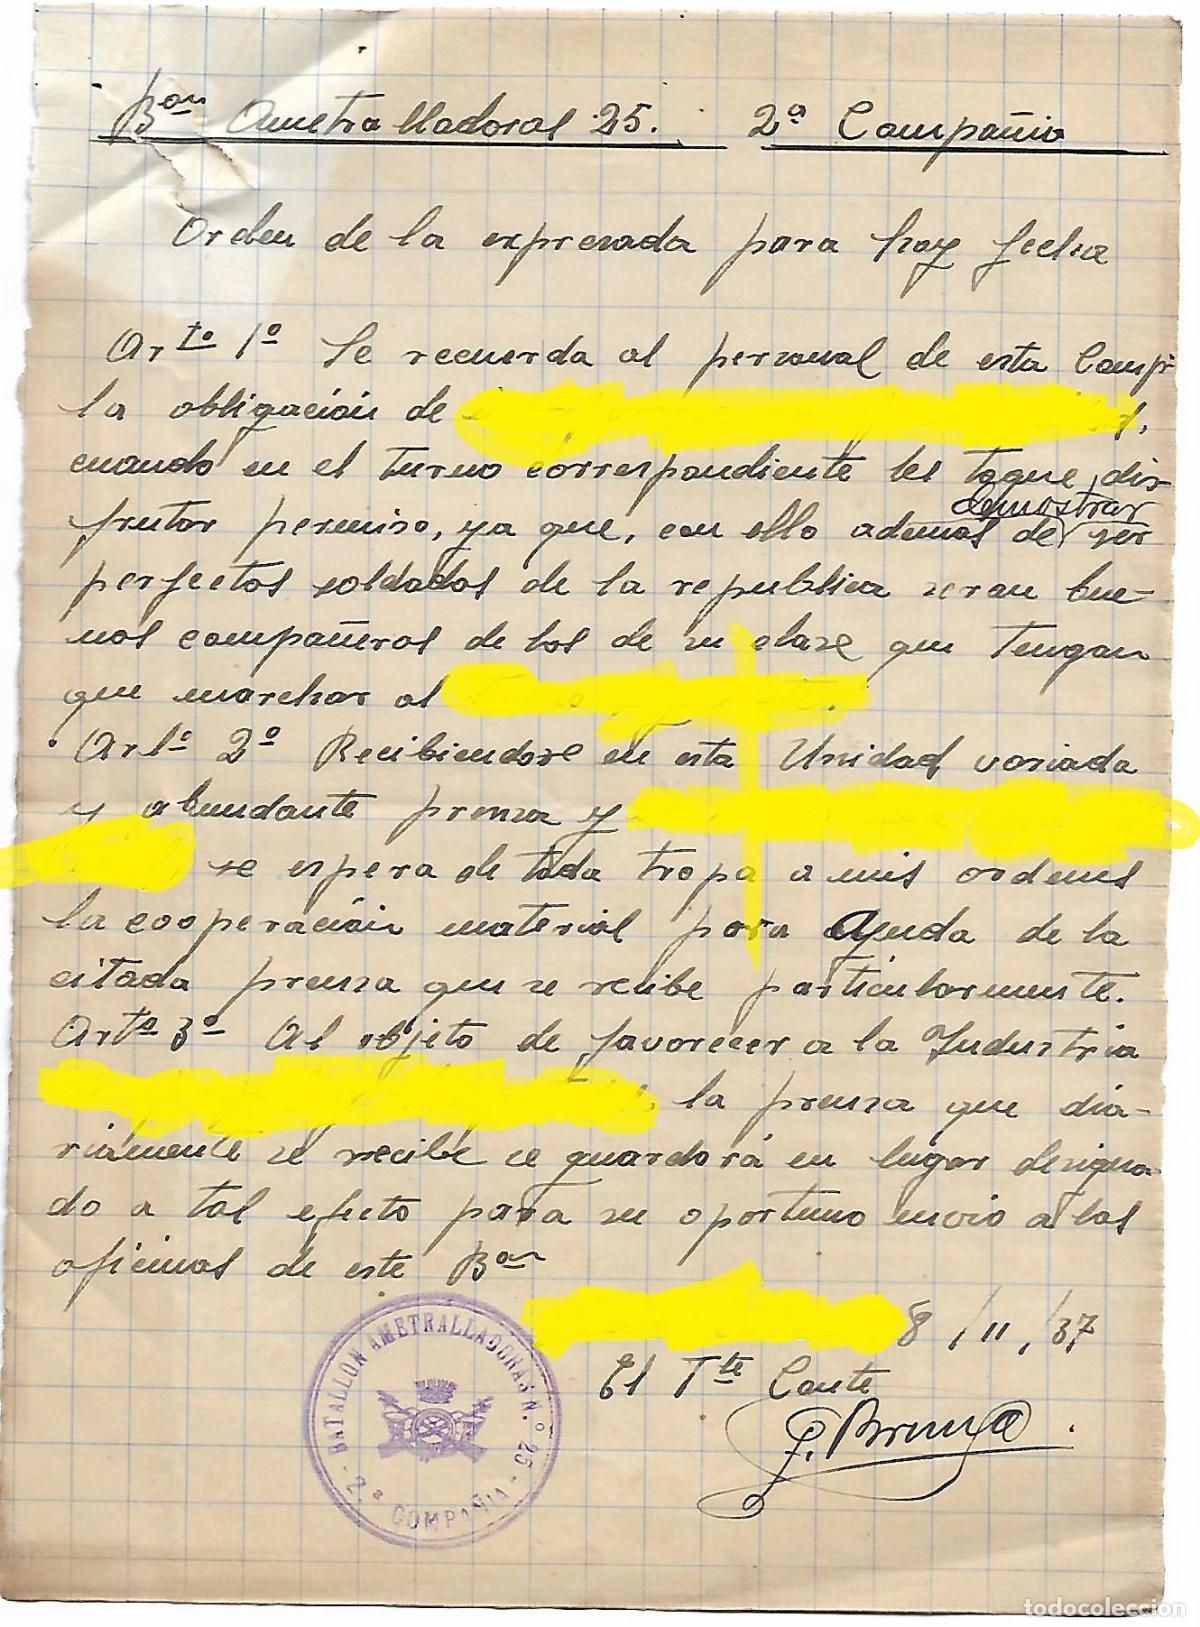 Bon Ametralladoras 25. 2ª Compañia
Orden de la expresada para hoy fecha
Arto 1º Se recuerda al personal de esta Compª
la obligación de
cuando en el turno correspondiente les toque, dis-
demostrar
frutar permiso, ya que, con ello ademas de ser
perfectos soldados de la republica seran bue-
nos compañeros de los de su clase que tengan
que marchar al
Arto 2º Recibiendose en esta Unidad, variada
y abundante prensa y
se espera de toda tropa a mis ordenes
la cooperación material para ayuda de la
citada prensa que se recibe particularmente.
Arto 3º Al objeto de favorecer a la Industria
, la prensa que dia-
riamente se recibe se guardará en lugar designa-
do a tal efecto para su oportuno envio a las
oficinas de este Bon
8/11/37
El Tte Comte
BATALLON AMETRALLADORAS N.º 25
- 2.ª COMPAÑIA -
todocoleccion